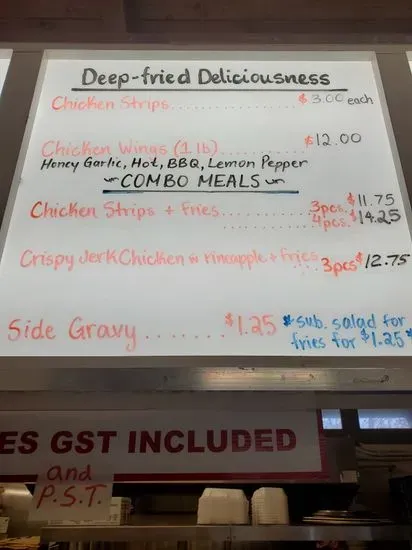 Deep-fried Deliciousness
Chicken Strips.................. $3.00 each
Chicken Wings (1 lb)............ $12.00
Honey Garlic, Hot, BBQ, Lemon Pepper
COMBO MEALS
Chicken Strips + Fries........ 3pcs. $11.75
........ 4pcs. $14.25
Crispy Jerk Chicken w Pineapple + Fries... 3pcs $12.75
Side Gravy....... $1.25 *sub. salad for
fries for $1.25*
ES GST INCLUDED
and
P.S.T.